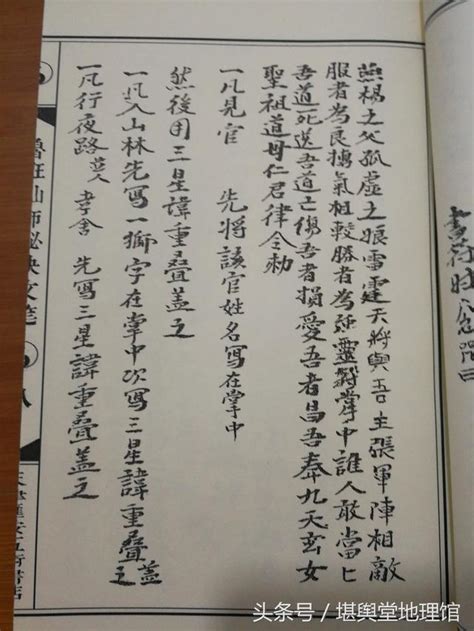 燕楊之父孤虚之娘雪霆天將與吾主張軍陣相敵
服者為良搏氣相較勝者為強靈符掌中誰人敢當匕
吾道死送吾道亡傷吾者損愛吾者昌吾奉九天玄女
聖祖道母仁君律令勅
一凡見官 先將該官姓名寫在掌中
然後用三星諱重叠盖之
一凡入山林先寫一獅字在掌中次寫三星諱重叠盖之
一凡行夜路 孝舍 先寫三星諱重叠盖之
仙師秘訣文筆
八
头条号 / 堪舆堂地理馆